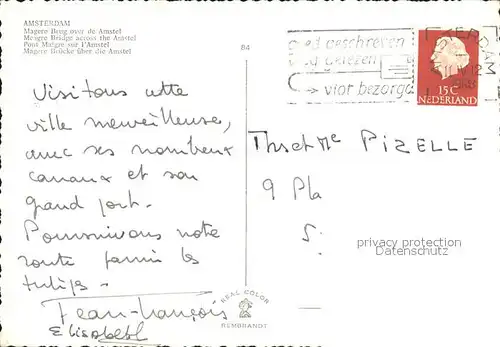 AMSTERDAM
Magere Brug over de Amstel
Meagre Bridge across the Amstel
Pont Maigre sur l'Amstel
Magere Brücke über die Amstel
84
goed geschreven
goed gelezen
vlot bezorgd
15C
NEDERLAND
Visitons cette
ville merveilleuse,
avec ses nombreux
canaux et son
grand port.
Poursuivons notre
route parmi les
tulipes.
Jean-François
Elisabeth
Mr et Me PIZELLE
9 Pla
S
privacy protection
Datenschutz
REAL COLOR
REMBRANDT